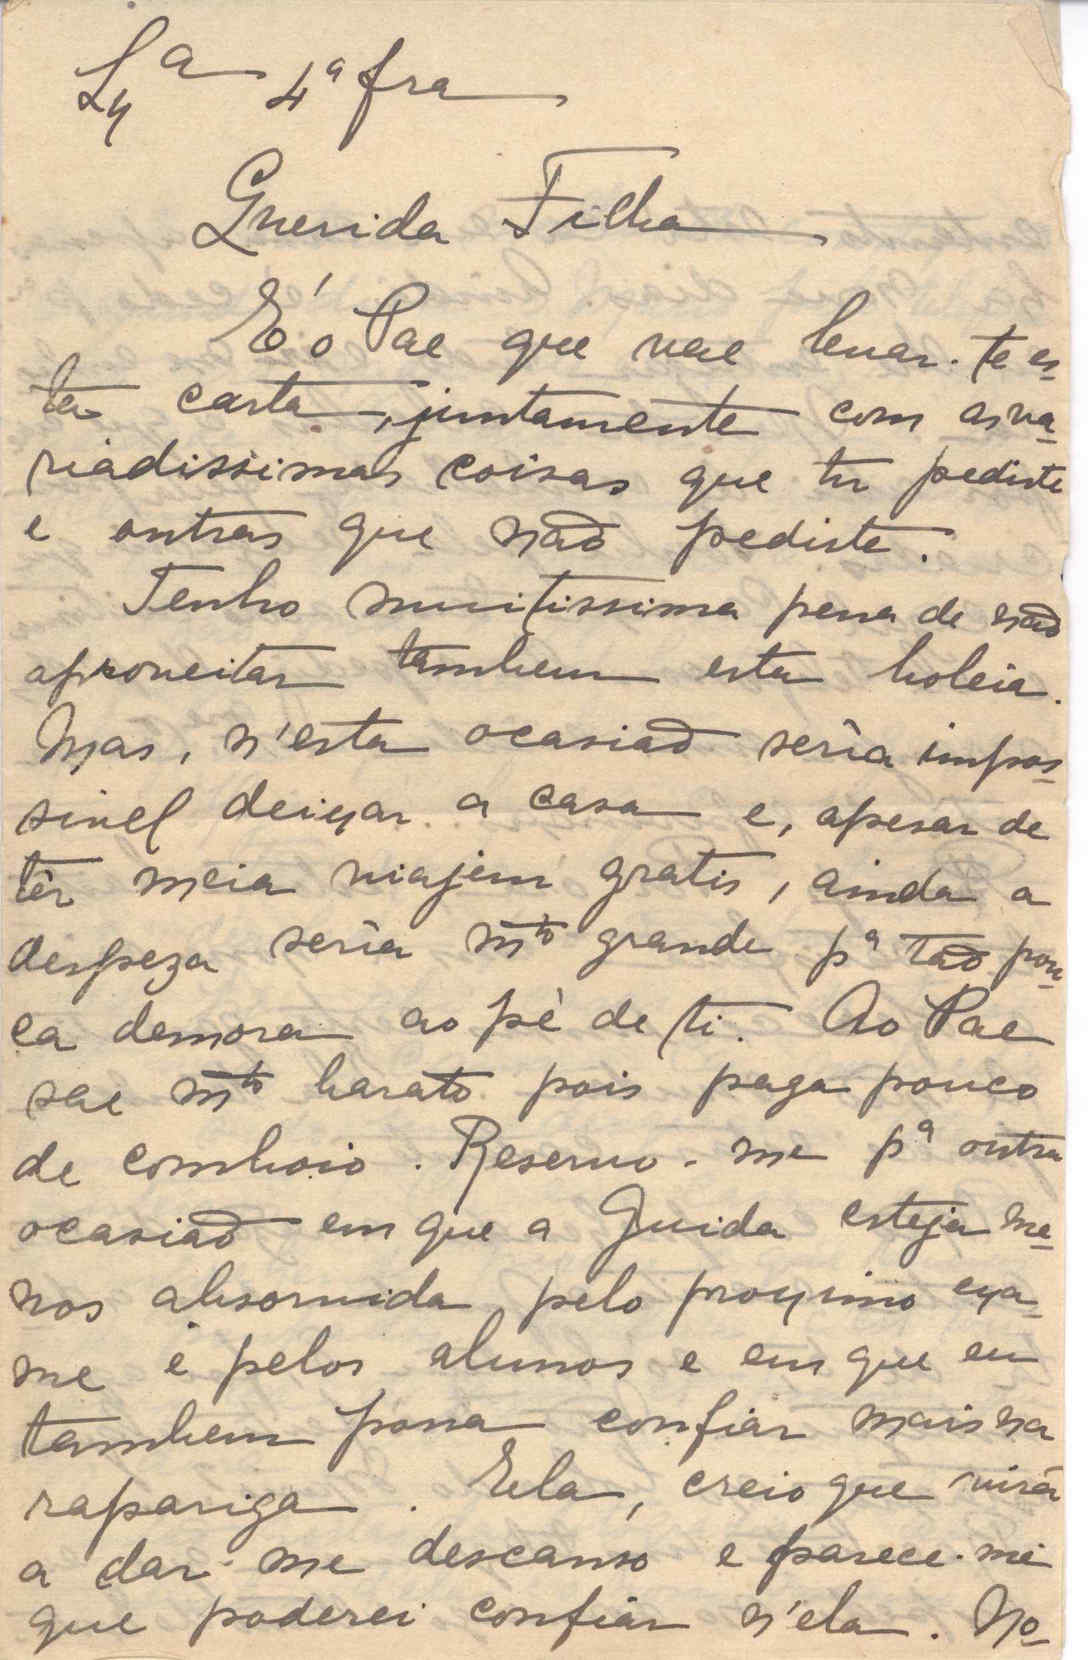 Lxª 4ª fra
Querida Filha
E' o Pae que vae levar-te es-
ta carta, juntamente com as va-
riadissimas coisas que tu pediste
e outras que não pediste.
Tenho muitissima pena de não
aproveitar tambem esta boleia.
Mas, n'esta ocasião sería impos-
sivel deixar a casa e, apesar de
têr meia viajem gratis, ainda a
despeza sería mto grande pª tão pou-
ca demora ao pé de ti. Ao Pae
sae mto barato pois paga pouco
de comboio. Reservo-me pª outra
ocasião em que a Guida esteja me-
nos absorvida pelo proximo exa-
me e pelos alunos e em que eu
tambem possa confiar mais na
rapariga. Ela, creio que virá
a dar-me descanso e parece-me
que poderei confiar n'ela. No-